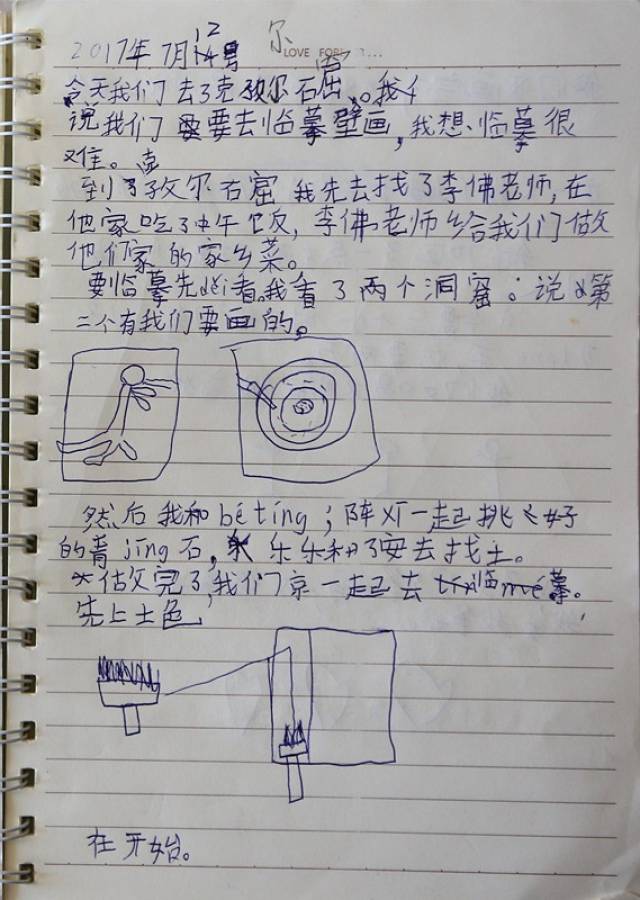 2017年7月12号 尔
LOVE FOR
今天我们去了克孜尔石窟。我
说我们要去临摹壁画，我想临摹很
难。
到了孜尔石窟我先去找了李佛老师,在
他家吃了中午饭,李佛老师给我们做
他们家的家乡菜。
要临摹先看。我看了两个洞窟：说第
二个有我们要画的。
然后我和béting；阵一起挑好
的青jīng石，乐乐和安去找土。
做完了,我们一起去临摹。
先上土色
在开始。